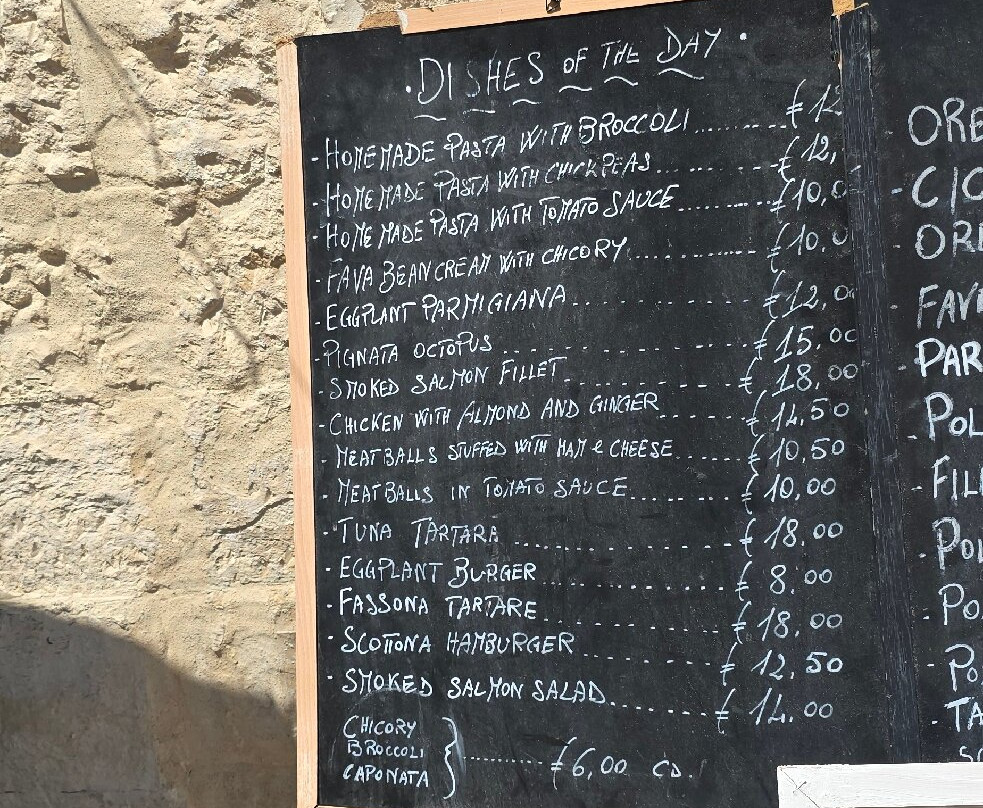 . DISHES OF THE DAY .
- HOMEMADE PASTA WITH BROCCOLI ........ € 12
- HOMEMADE PASTA WITH CHICKPEAS ........ € 12,
- HOMEMADE PASTA WITH TOMATO SAUCE ........ € 10,0
- FAVA BEAN CREAM WITH CHICORY ........ € 10.0
- EGGPLANT PARMIGIANA ........ € 12,00
- PIGNATA OCTOPUS ........ € 15.00
- SMOKED SALMON FILLET ........ € 18,00
- CHICKEN WITH ALMOND AND GINGER ........ € 14,50
- MEATBALLS STUFFED WITH HAM e CHEESE ........ € 10,50
- MEATBALLS IN TOMATO SAUCE ........ € 10,00
- TUNA TARTARA ........ € 18.00
- EGGPLANT BURGER ........ € 8.00
- FASSONA TARTARE ........ € 18.00
- SCOTTONA HAMBURGER ........ € 12,50
- SMOKED SALMON SALAD ........ € 14.00
CHICORY
BROCCOLI } ........ € 6,00 CD.
CAPONATA
ORE
- C/C
- ORE
- FAV
- PAR
- POL
- FIL
- POL
- PO
- PO
- TA